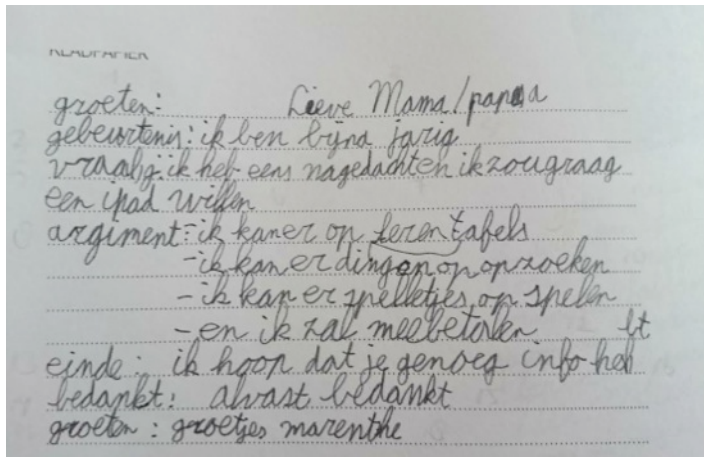 KLADPAPIER
groeten: Lieve Mama/papa
gebeurtenis: ik ben bijna jarig
vraag: ik heb eens nagedacht en ik zou graag
een ipad willen
argiment: - ik kan er op leren tafels
- ik kan er dingen op opzoeken
- ik kan er spelletjes op spelen
- en ik zal meebetalen bt
einde: ik hoop dat je genoeg info heb
bedankt: alvast bedankt
groeten: groetjes marenthe